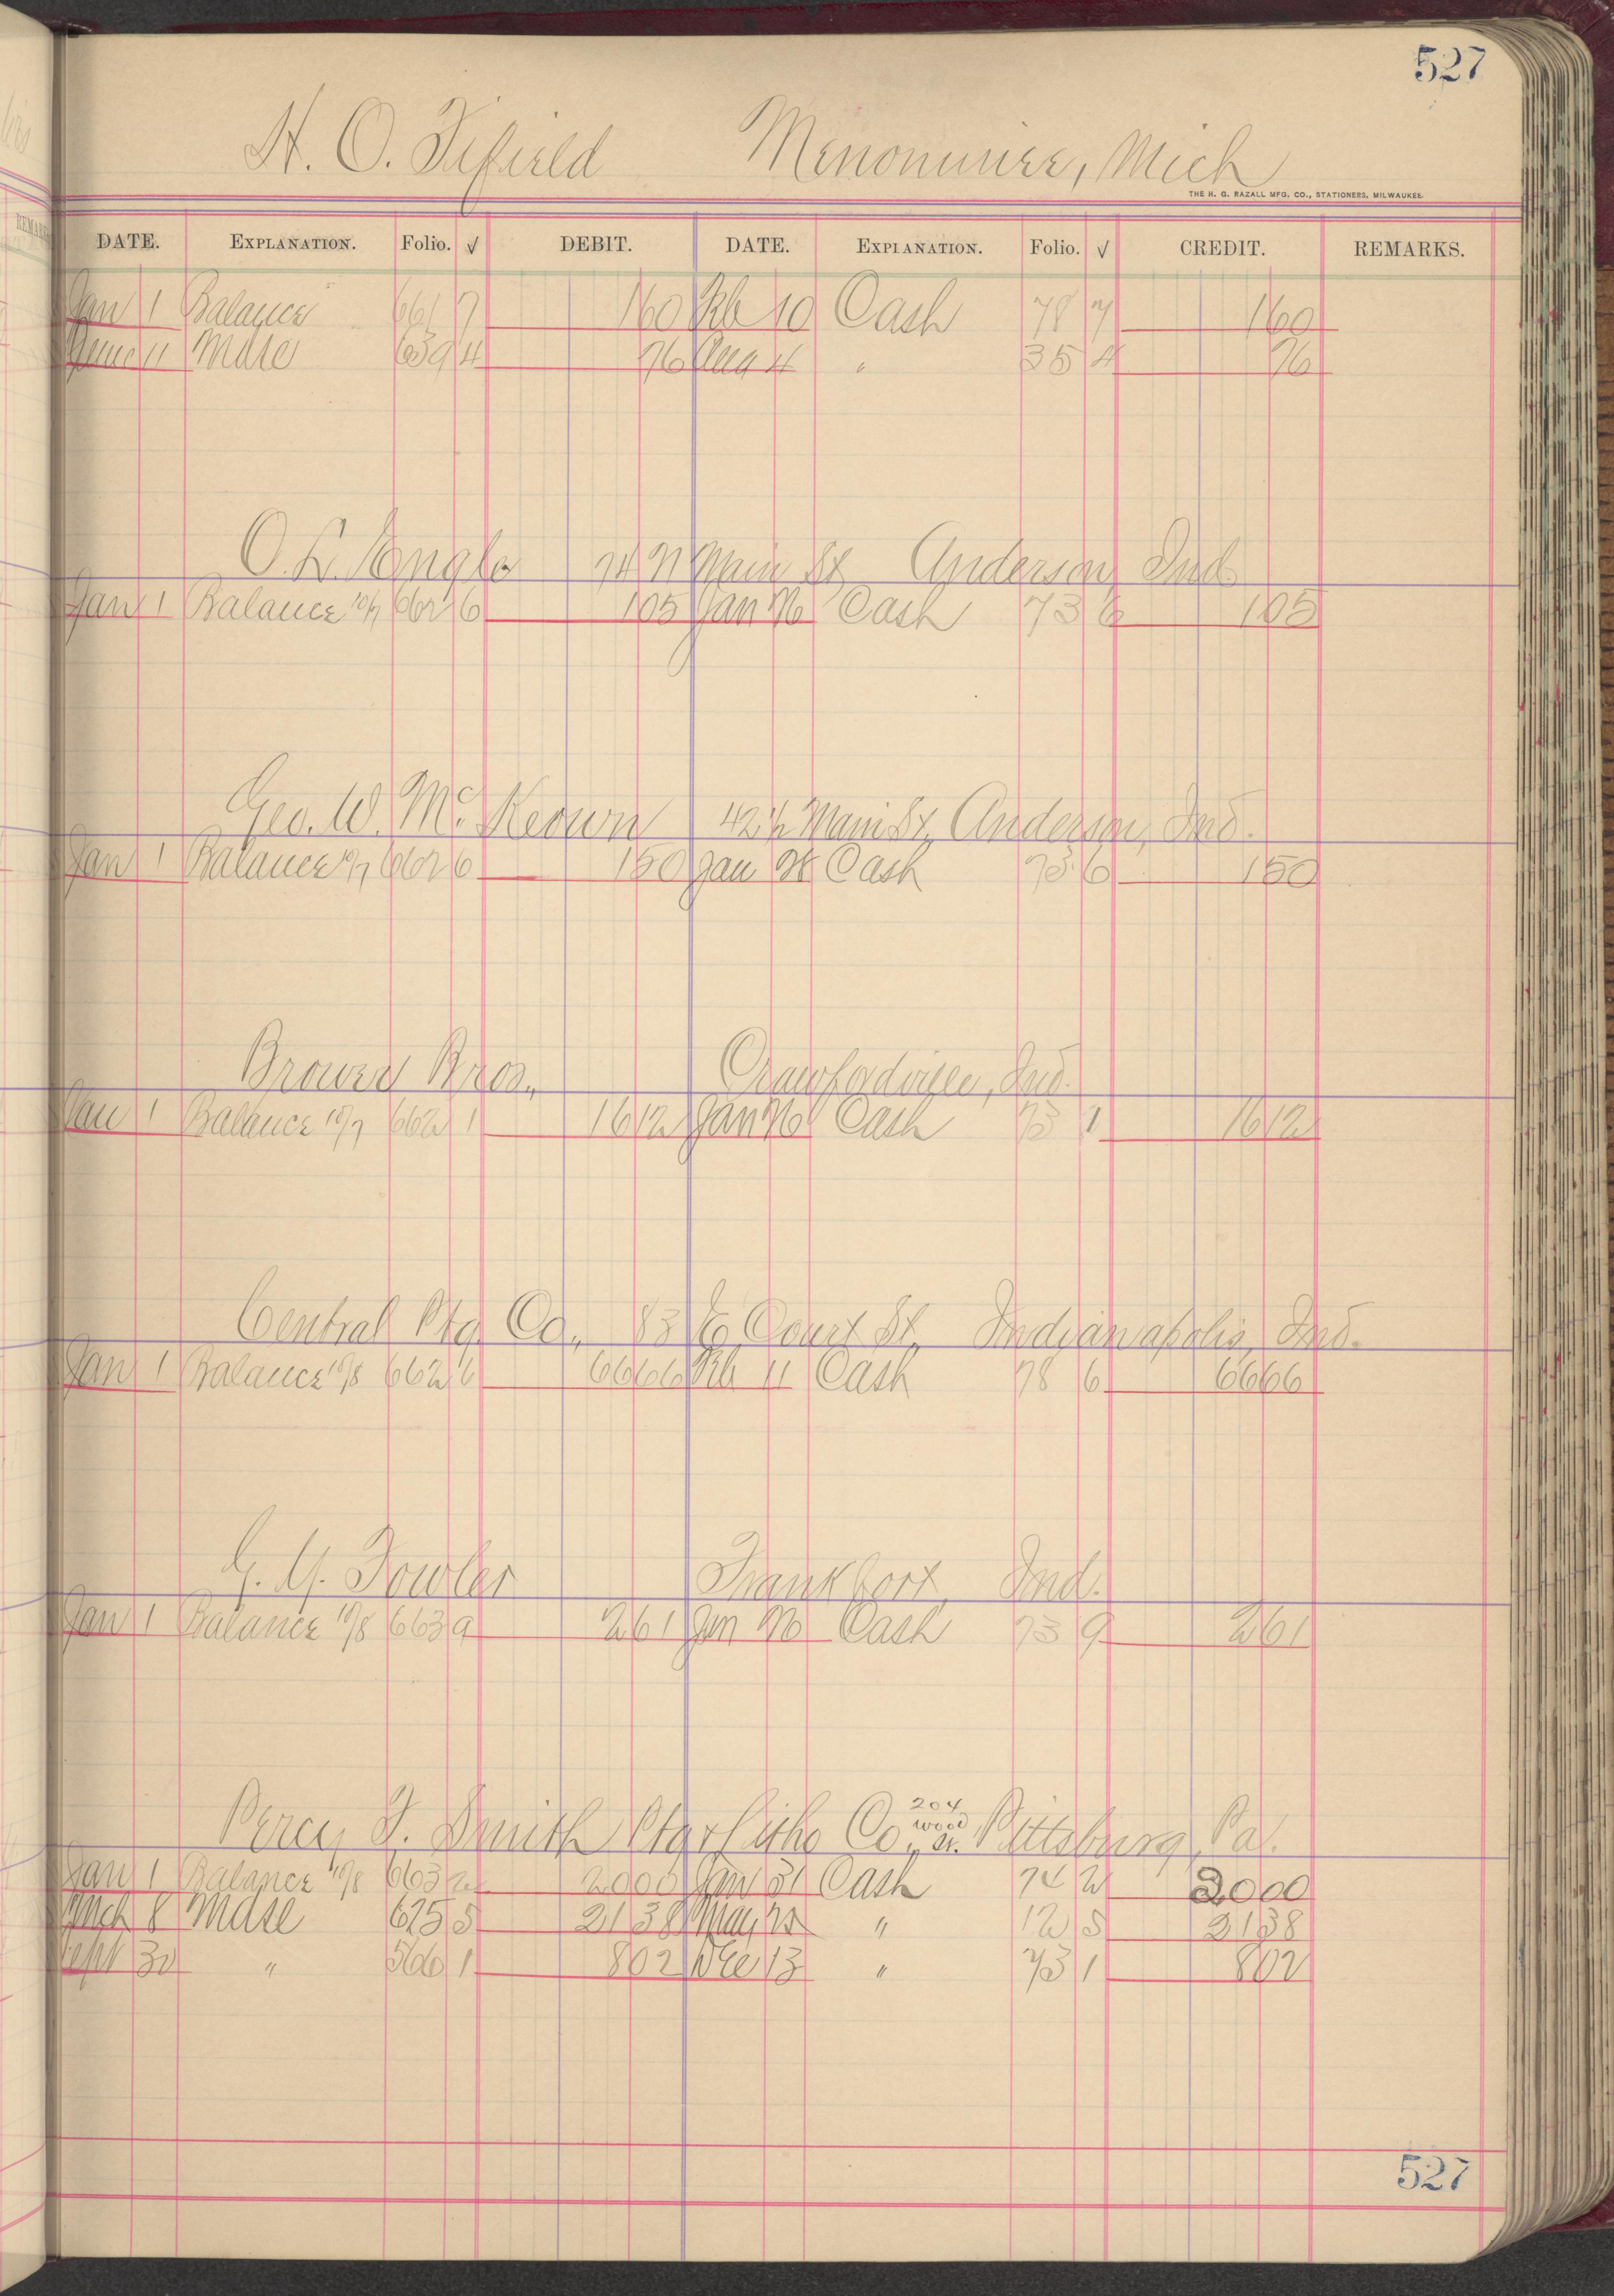 527
H. O. Fifield Menominee, Mich
THE H. G. RAZALL MFG. CO., STATIONERS, MILWAUKEE.
DATE. EXPLANATION. Folio. √ DEBIT. DATE. EXPLANATION. Folio. √ CREDIT. REMARKS.
Jan 1 Balance 661 7 160 Feb 10 Cash 78 7 160
June 11 Mdse 639 4 76 Aug 4 " 35 4 76
O. L. Engle 74 N Main St Anderson Ind
Jan 1 Balance 10/7 662 6 105 Jan 26 Cash 73 6 105
Geo. W. McKeown 42½ Main St, Anderson, Ind.
Jan 1 Balance 10/7 662 6 150 Jan 28 Cash 73 6 150
Brower Bros., Crawfordsville, Ind.
Jan 1 Balance 10/7 662 1 1612 Jan 26 Cash 73 1 1612
Central Ptg. Co., 83 E Court St, Indianapolis, Ind.
Jan 1 Balance 10/8 662 6 6666 Feb 11 Cash 78 6 6666
G. Y. Fowler Frankfort, Ind.
Jan 1 Balance 10/8 663 9 261 Jan 26 Cash 73 9 261
Percy F. Smith Ptg & Litho Co., 204 Wood St. Pittsburg, Pa.
Jan 1 Balance 10/8 663 2 2000 Jan 31 Cash 74 2 2000
Mch 8 Mdse 675 5 2138 May 25 " 12 5 2138
Sept 30 " 566 1 802 Dec 13 " 73 1 802
527